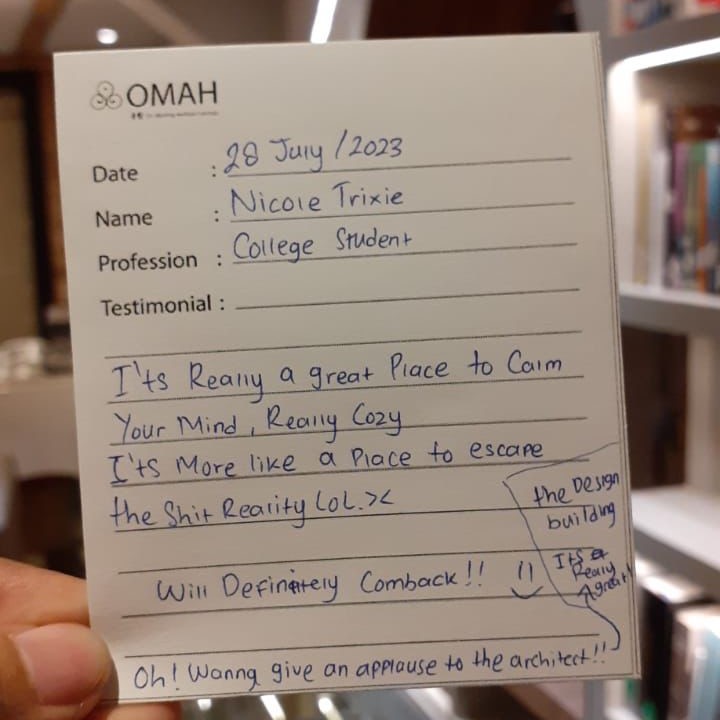 OMAH
Date : 28 July /2023
Name : Nicole Trixie
Profession : College Student
Testimonial :
I'ts Really a great Place to Calm
Your Mind, Really Cozy
I'ts More like a Place to escape
the Shit Reality LoL.><
Will Definitely Comback!! :)
Oh! Wanna give an applause to the architect!!
the Design
building
Its
Really
great!